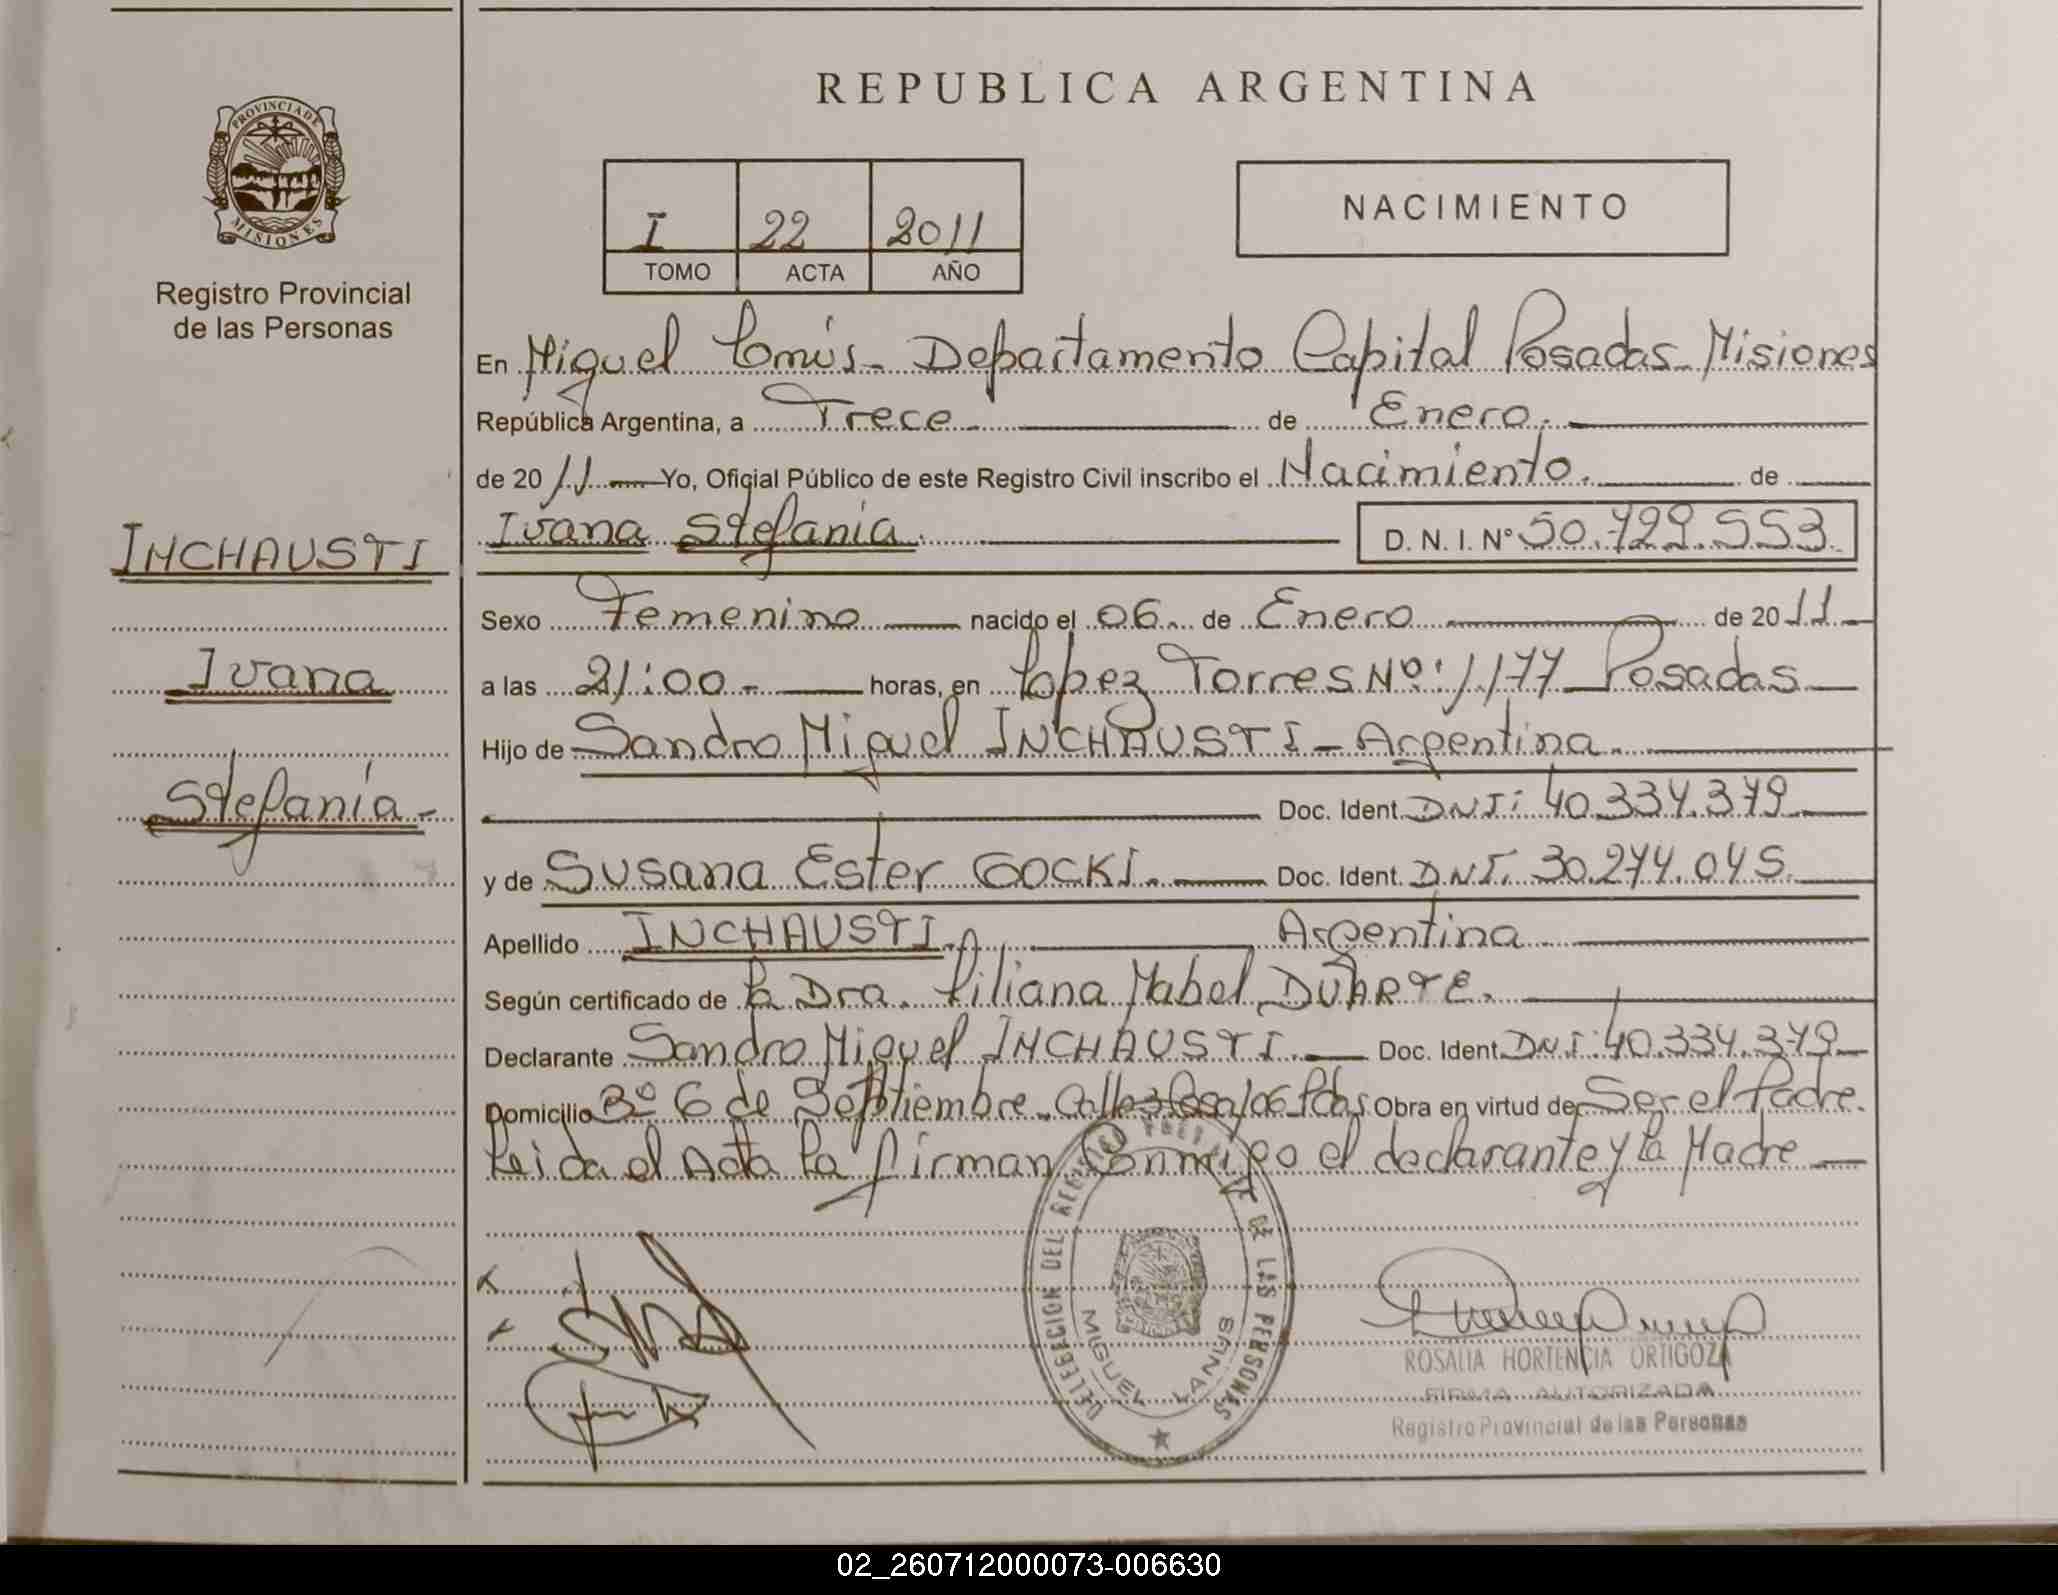 REPUBLICA ARGENTINA
PROVINCIA DE
MISIONES
Registro Provincial
de las Personas
I 22 2011
TOMO ACTA AÑO
NACIMIENTO
En Miguel Lanús - Departamento Capital Posadas - Misiones
República Argentina, a Trece de Enero.
de 2011 Yo, Oficial Público de este Registro Civil inscribo el Nacimiento. de
Ivana Stefanía. D. N. I. N° 50.729.553.
INCHAUSTI
Ivana
Stefanía -
Sexo Femenino nacido el 06 de Enero de 2011
a las 21:00 - horas, en Lopez Torres Nº: 1177 Posadas
Hijo de Sandro Miguel INCHAUSTI - Argentina.
Doc. Ident. DNI: 40.334.379
y de Susana Ester GOCKI. Doc. Ident. DNI. 30.274.045.
Apellido INCHAUSTI. Argentina
Según certificado de la Dra. Liliana Mabel DUARTE.
Declarante Sandro Miguel INCHAUSTI. Doc. Ident. DNI: 40.334.379
Domicilio Bº 6 de Septiembre - Pdas. Obra en virtud de Ser el Padre.
Leida el Acta la firman Conmigo el declarante y la Madre
DELEGACION DEL REGISTRO DE LAS PERSONAS
MIGUEL LANUS
ROSALIA HORTENCIA ORTIGOZA
FIRMA AUTORIZADA
Registro Provincial de las Personas
02_260712000073-006630